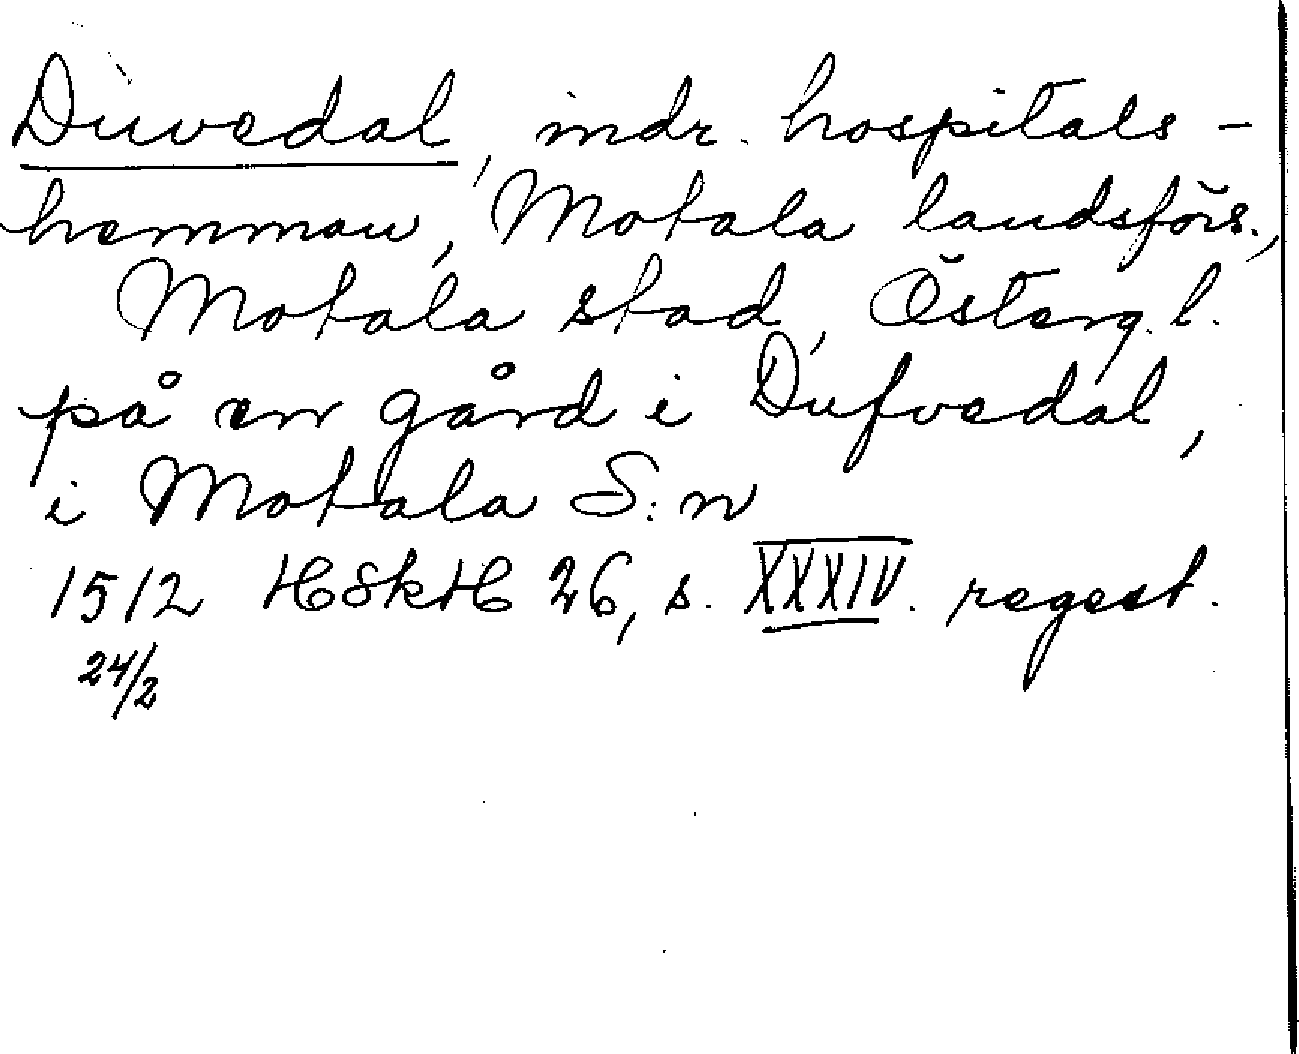 Duvedal, indr. hospitals-
hemman, Motala landsförs.,
Motala stad, Österg. l.
på en gård i Dufvedal,
i Motala S:n
1512 HSkH 26, s. XXXIV. regest.
24/2